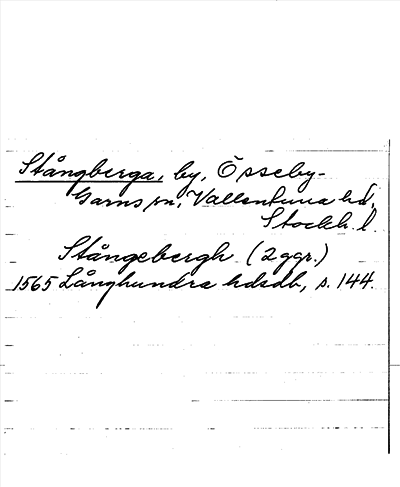 Stångberga, by, Össeby-
Garns sn, Vallentuna hd,
Stockh. l.
Stångebergh (2 ggr.)
1565 Långhundra hdsdb, s. 144.